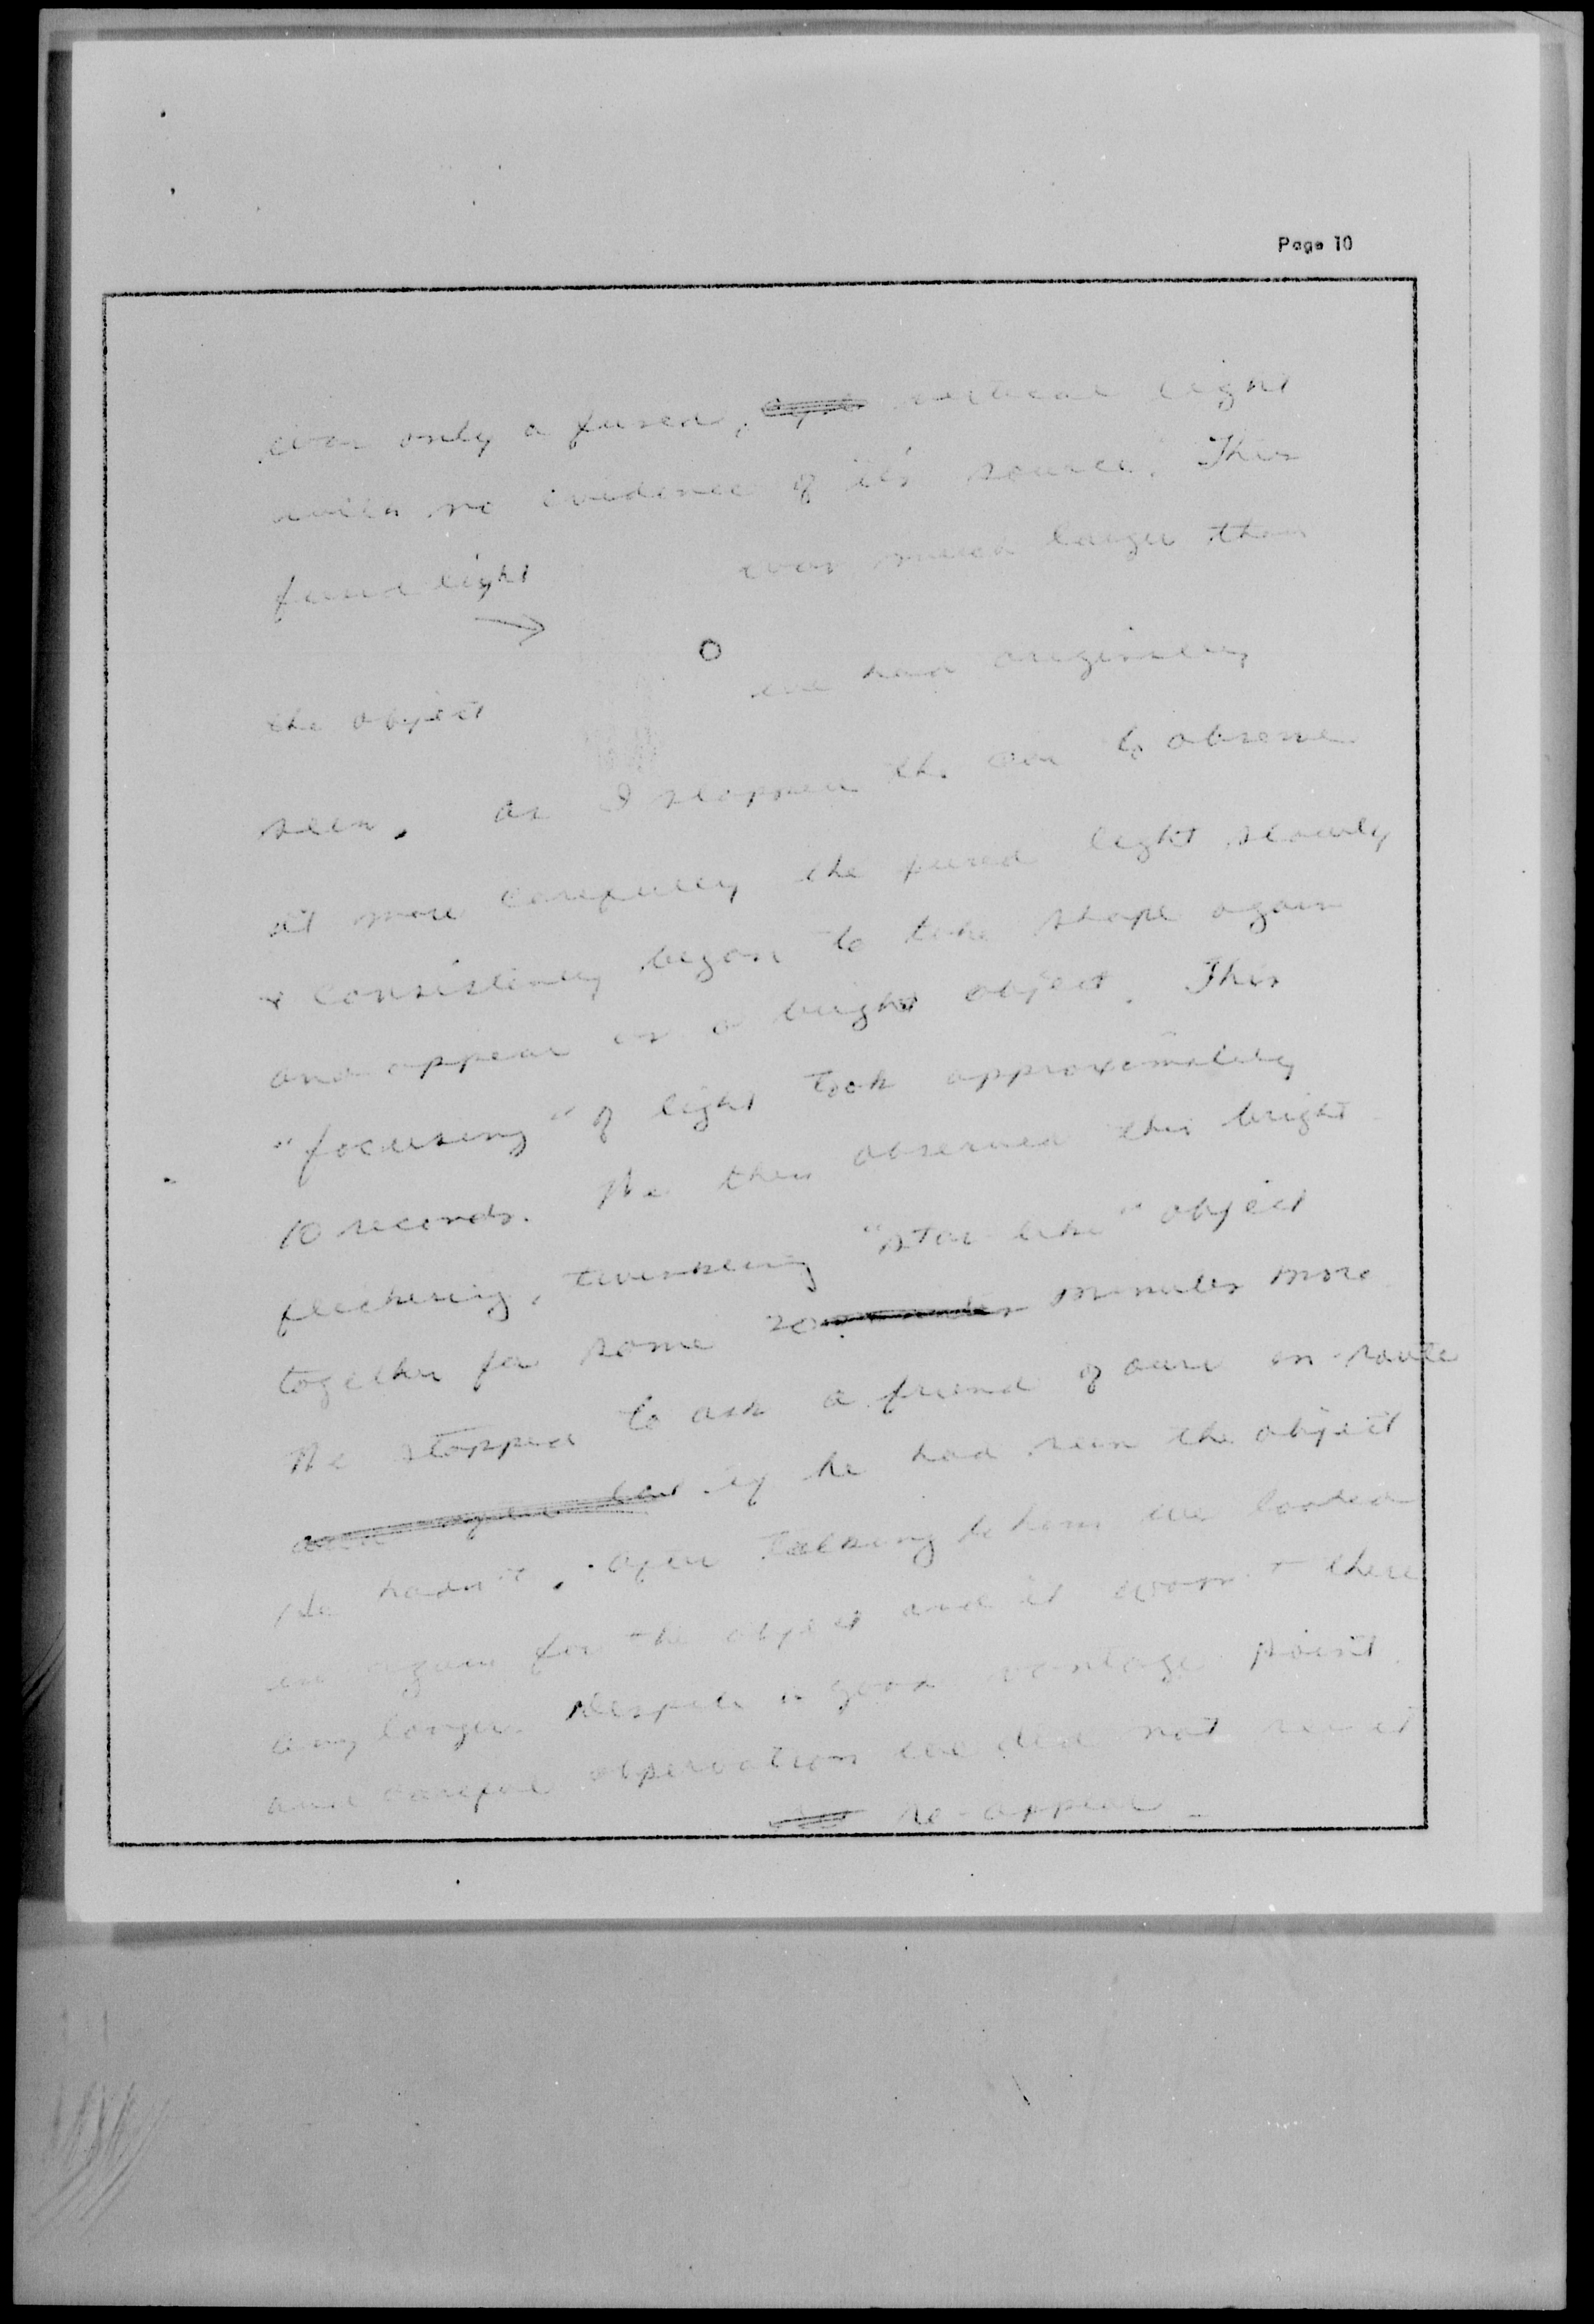 Page 10
was only a fused, vertical light
with no evidence of it's source. This
fused light was much larger than
the object we had originally
seen. As I stopped the car to observe
it more carefully the fused light slowly
& consistently began to take shape again
and appear as a bright object. This
"focusing" of light took approximately
10 seconds. We then observed this bright
flickering, twinkling "star like" object
together for some 20 minutes more
We stopped to ask a friend of ours en-route
if he had seen the object
He hadn't. After talking to him we looked
again for the object and it wasn't there
any longer. Despite a good vantage point
and careful observation we did not see it
re-appear